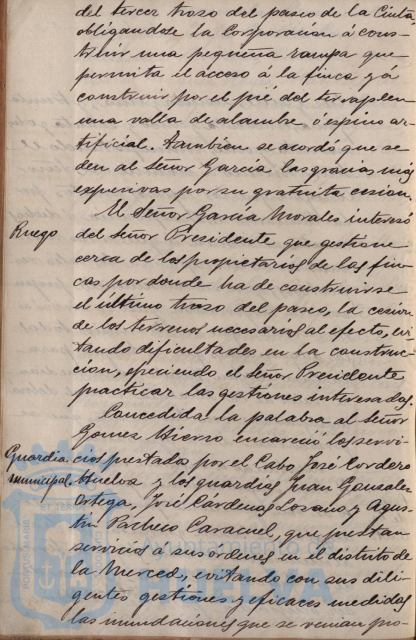 del tercer trozo del paseo de la Cinta
obligandose la Corporación á cons-
truir una pequeña rampa que
permita el acceso á la finca y á
construir por el pié del terraplen
una valla de alambre ó espino ar-
tificial. Tambien se acordó que se
den al Señor García las gracias más
expresivas por su gratuita cesion.
El Señor García Morales interesó
Ruego
del Señor Presidente que gestione
cerca de los propietarios de las fin-
cas por donde ha de construirse
el último trozo del paseo, la cesion
de los terrenos necesarios al efecto, evi-
tando dificultades en la construc-
cion, ofreciendo el Señor Presidente
practicar las gestiones interesadas.
Concedida la palabra al Señor
Gomez Hierro encareció los servi-
Guardia
municipal.
cios prestados por el Cabo José Cordero
Huelva y los guardias Juan Gonzalez
Ortega, José Cárdenas Lozano y Agus-
tin Pacheco Caracuel, que prestan
servicios á sus órdenes en el distrito de
la Merced, evitando con sus dili-
gentes gestiones y eficaces medidas
las inundaciones que se venian pro-